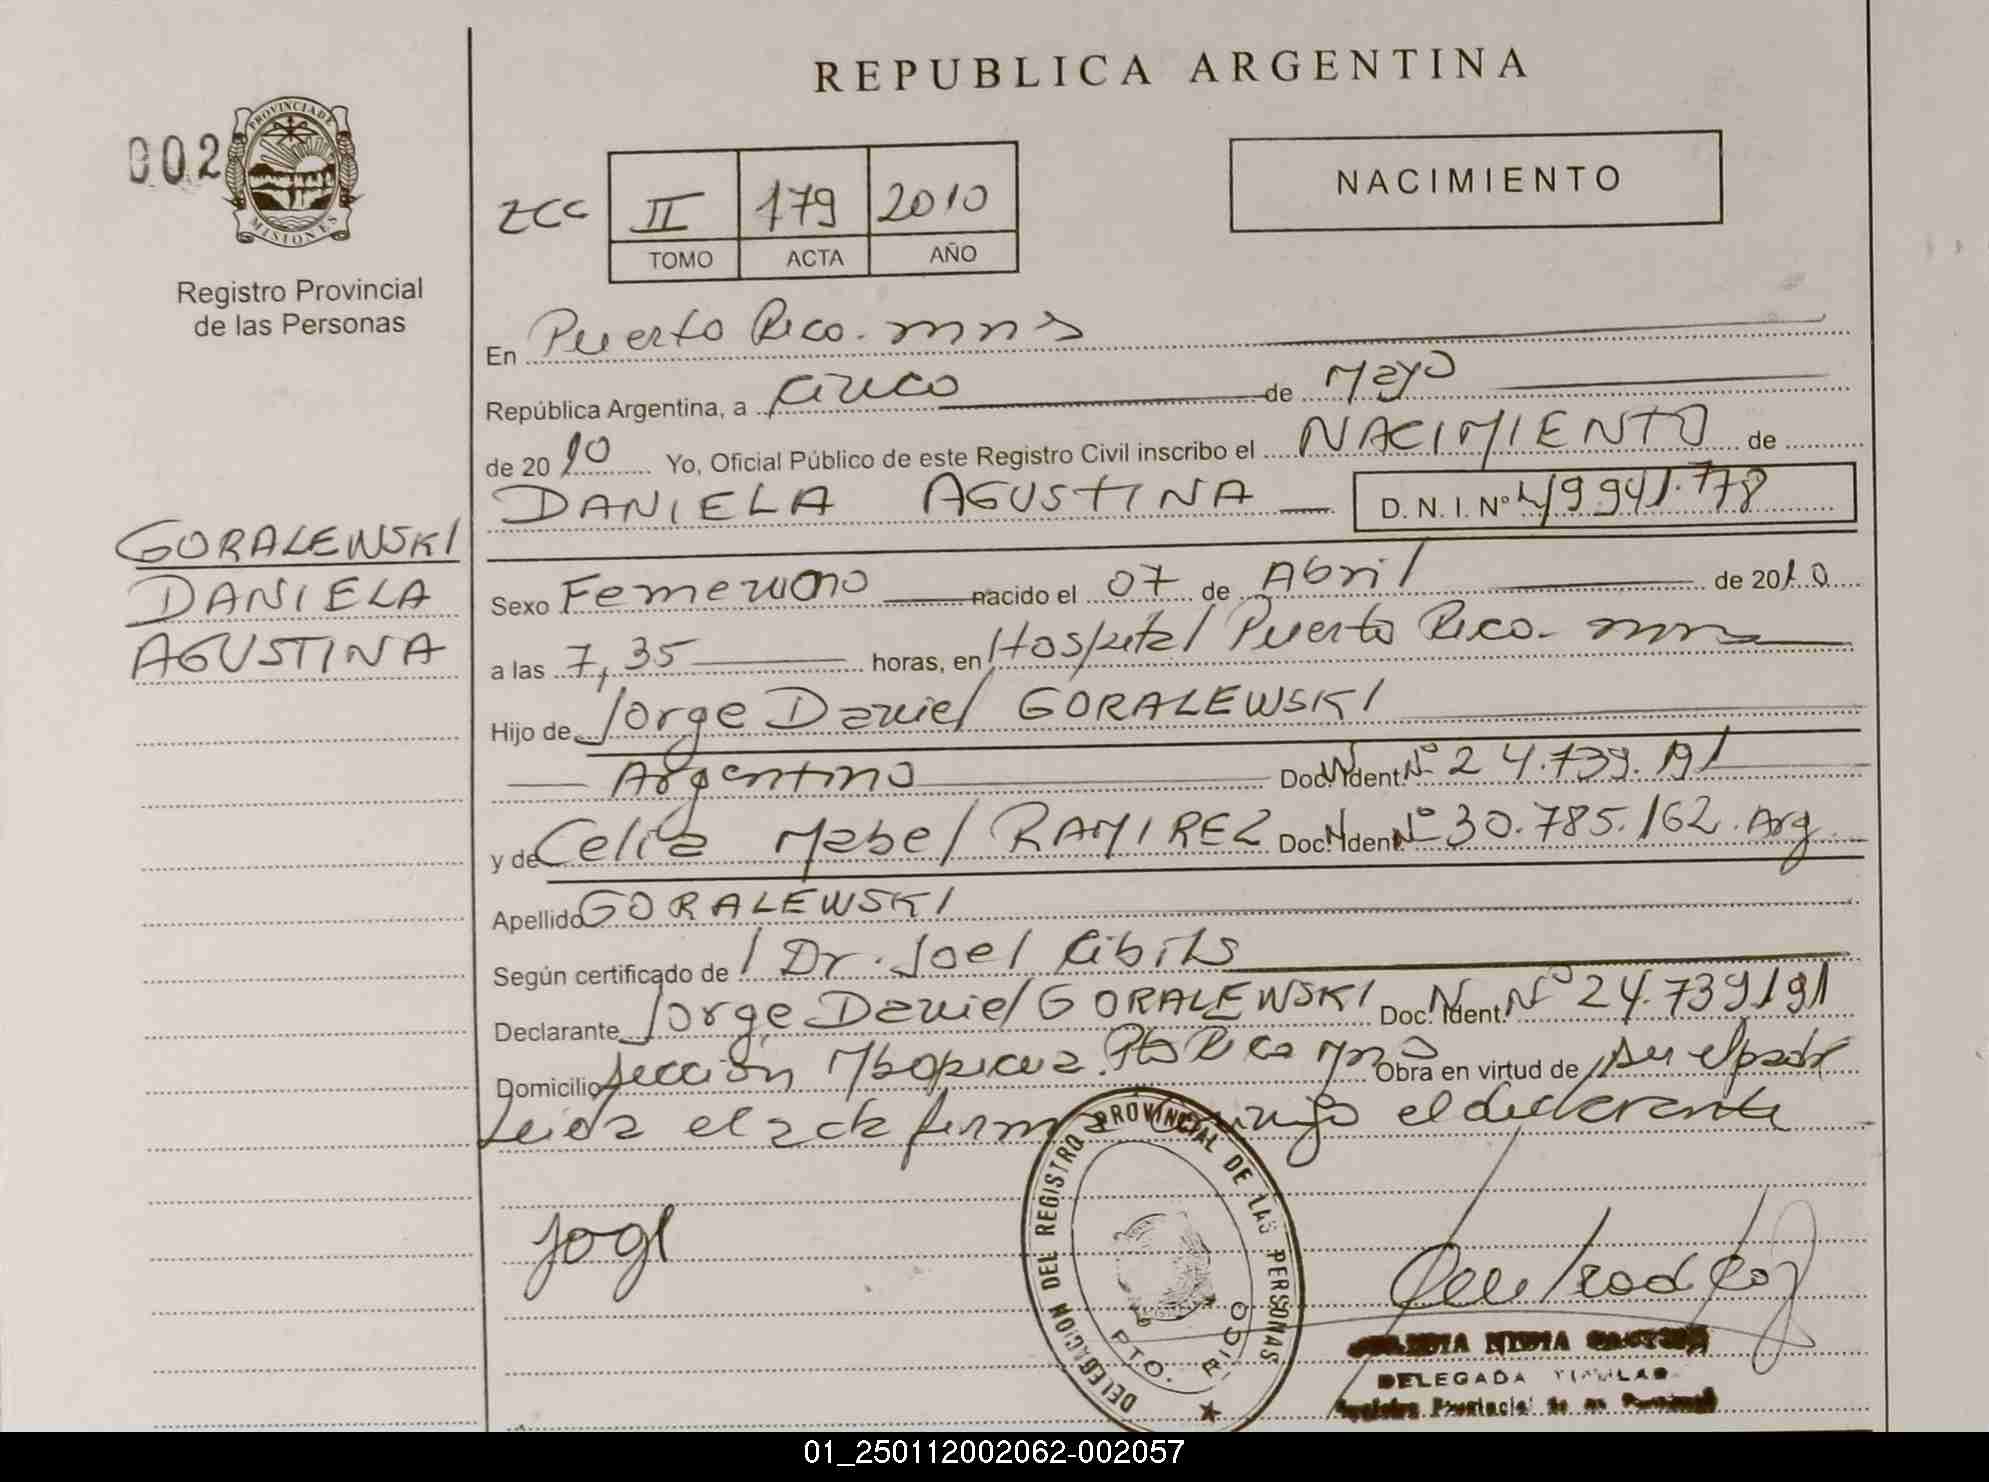 REPUBLICA ARGENTINA
002
PROVINCIA DE
MISIONES
Registro Provincial
de las Personas
NACIMIENTO
II 179 2010
TOMO ACTA AÑO
En Puerto Rico. mns
República Argentina, a cinco de Mayo
de 2010 Yo, Oficial Público de este Registro Civil inscribo el NACIMIENTO de
DANIELA AGUSTINA D. N. I. Nº 49941.778
GORALEWSKI
DANIELA
AGUSTINA
Sexo Femenino nacido el 07 de Abril de 2010
a las 7,35 horas, en Hospital Puerto Rico. mns
Hijo de Jorge Daniel GORALEWSKI
Argentino Doc. Ident. Nº 24.739.191
y de Celia Mabel RAMIREZ Doc. Ident. Nº 30.785.162. Arg
Apellido GORALEWSKI
Según certificado de Dr. Joel
Declarante Jorge Daniel GORALEWSKI Doc. Ident. Nº 24.739191
Domicilio sección Pto Rico mns Obra en virtud de ser el padre
Leida el acta firma el declarante
jogl
DELEGACION DEL REGISTRO PROVINCIAL DE LAS PERSONAS
PTO. RICO
DELEGADA TITULAR
01_250112002062-002057